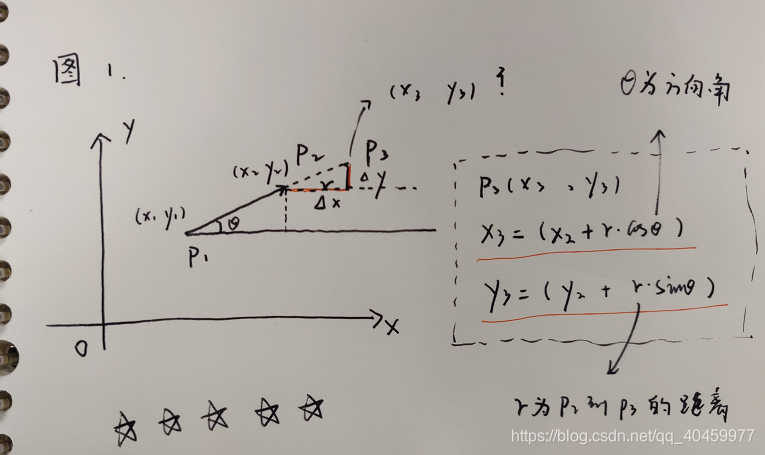 图 1.
(x3 y3) ?
θ为方向角
y
(x2 y2) P2 P3
r Δy
Δx
(x1 y1)
θ
P1
O
x
P3(x3, y3)
x3=(x2+r·cosθ)
y3=(y2+r·sinθ)
r为P2到P3的距离
https://blog.csdn.net/qq_40459977